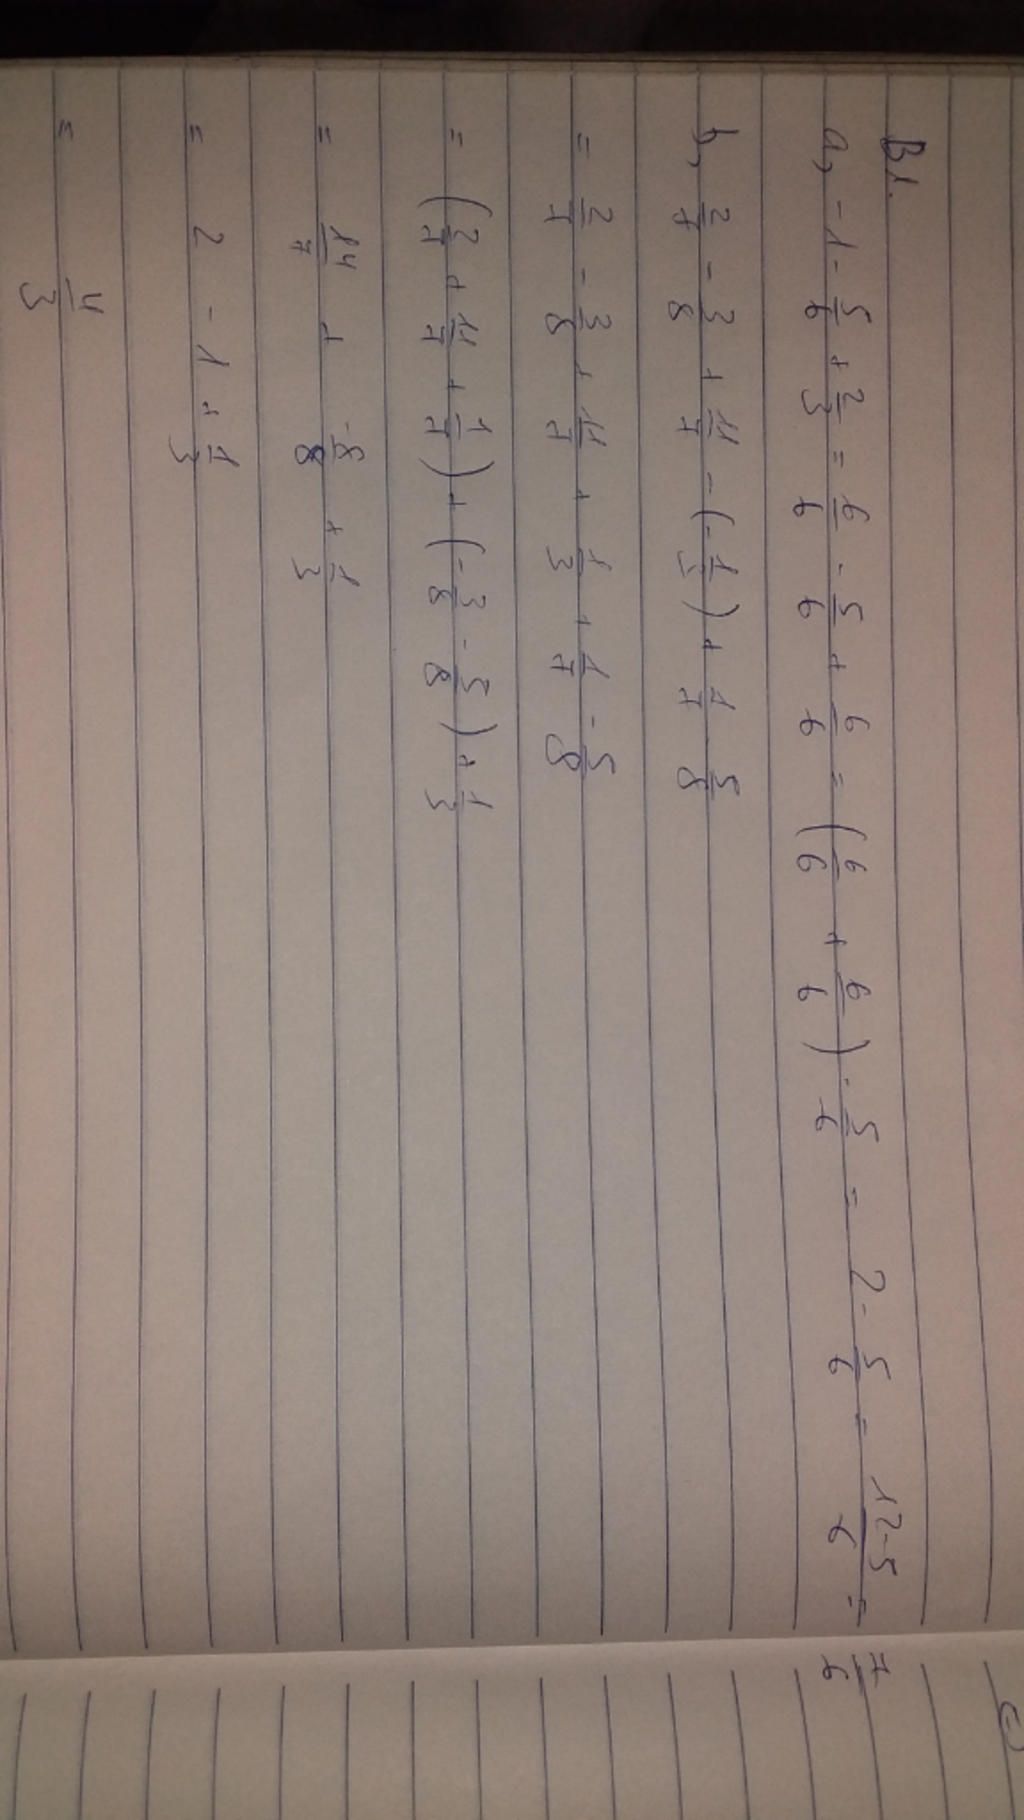 B1.
a, -1 - 5/6 + 2/3 = 6/6 - 5/6 + 6/6 = (6/6 + 6/6) - 5/6 = 2 - 5/6 = 12-5/6 = 7/6
b, 2/7 - 3/8 + 11/7 - (-1/3) + 1/7 5/8
= 2/7 - 3/8 + 11/7 + 1/3 + 1/7 - 5/8
= (2/7 + 11/7 + 1/7) + (-3/8 - 5/8) + 1/3
= 14/7 + -8/8 + 1/3
= 2 - 1 + 1/3
= 4/3